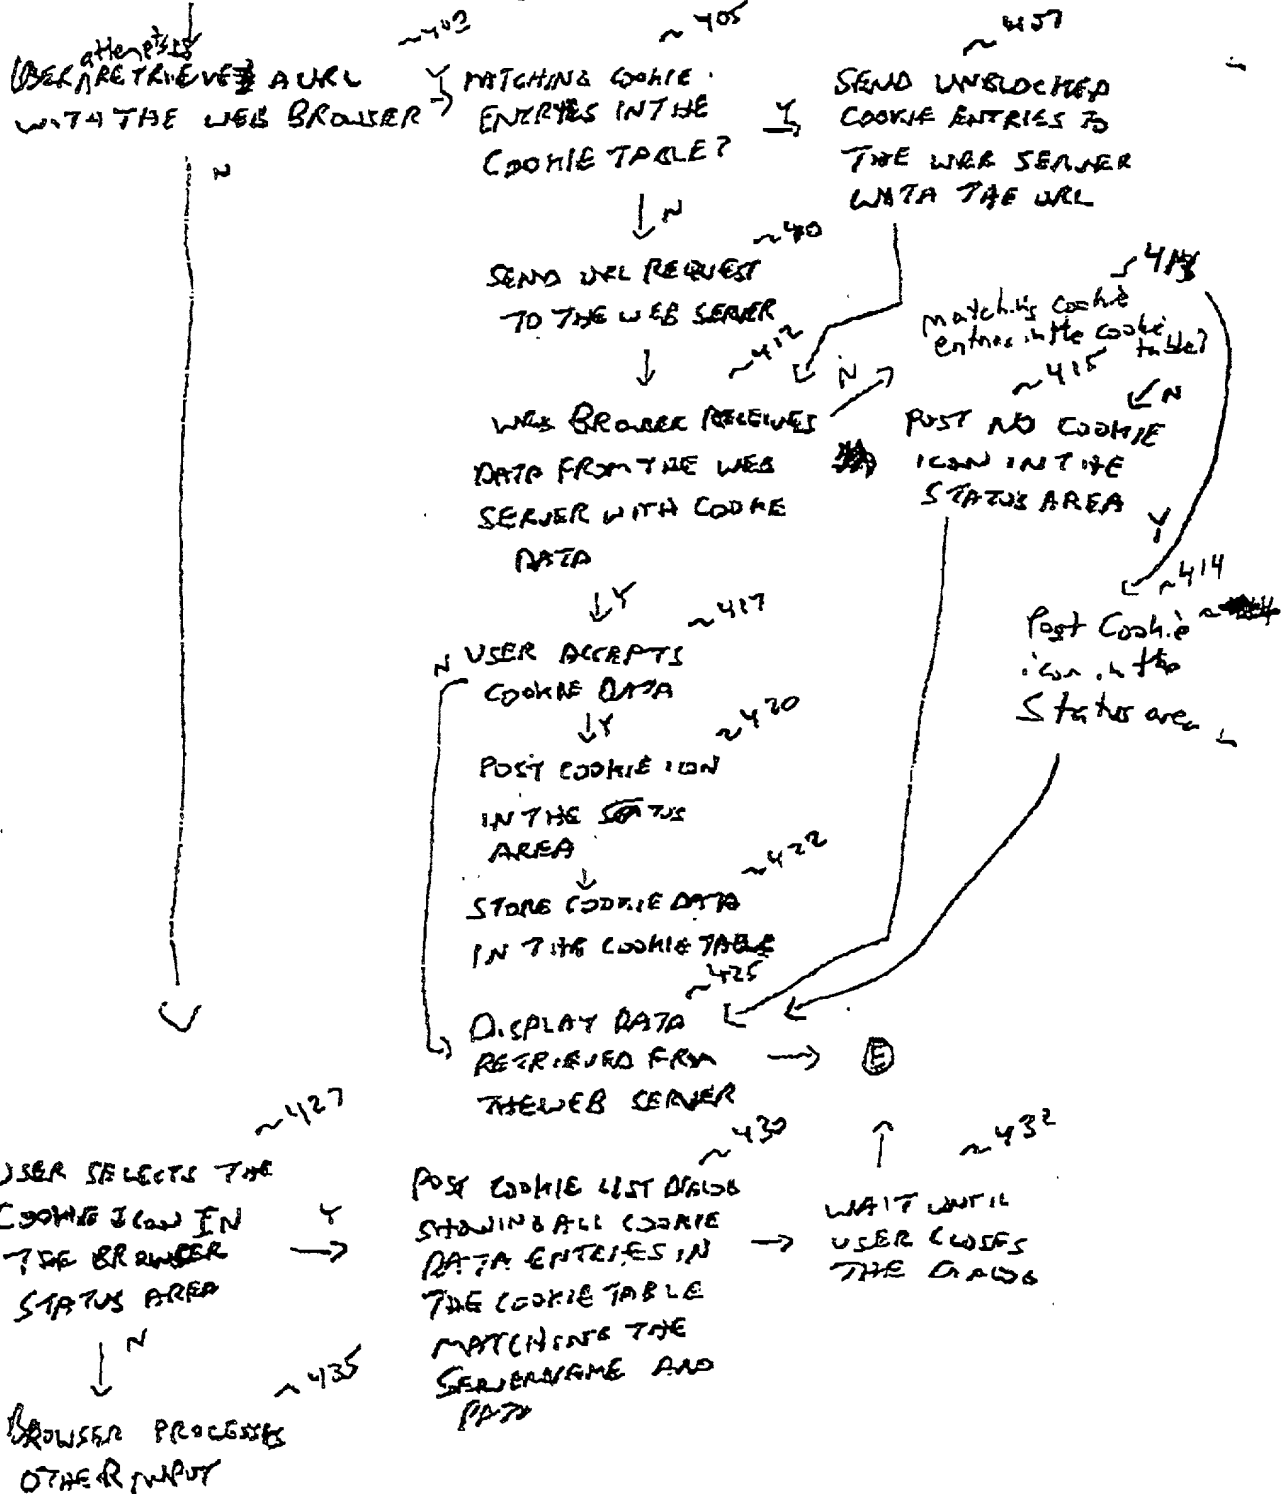 ~402
USER attempts to RETRIEVE A URL
WITH THE WEB BROWSER
Y
N
~405
MATCHING COOKIE
ENTRYES IN THE
COOKIE TABLE?
Y
N
~407
SEND UNBLOCKED
COOKIE ENTRIES TO
THE WEB SERVER
WITH THE URL
~410
SEND URL REQUEST
TO THE WEB SERVER
~412
WEB BROWSER RECEIVES
DATA FROM THE WEB
SERVER WITH COOKIE
DATA
N
Y
413
matching cookie
entries in the cookie
table?
N
Y
~415
POST NO COOKIE
ICON IN THE
STATUS AREA
~414
Post Cookie
icon in the
Status area
~417
N USER ACCEPTS
COOKIE DATA
Y
~420
POST COOKIE ICON
IN THE STATUS
AREA
~422
STORE COOKIE DATA
IN THE COOKIE TABLE
~425
DISPLAY DATA
RETRIEVED FROM
THE WEB SERVER
E
~427
USER SELECTS THE
COOKIE ICON IN
THE BROWSER
STATUS AREA
Y
N
~430
POST COOKIE LIST DIALOG
SHOWING ALL COOKIE
DATA ENTRIES IN
THE COOKIE TABLE
MATCHING THE
SERVERNAME AND
PATH
~432
WAIT UNTIL
USER CLOSES
THE DIALOG
~435
BROWSER PROCESSES
OTHER INPUT